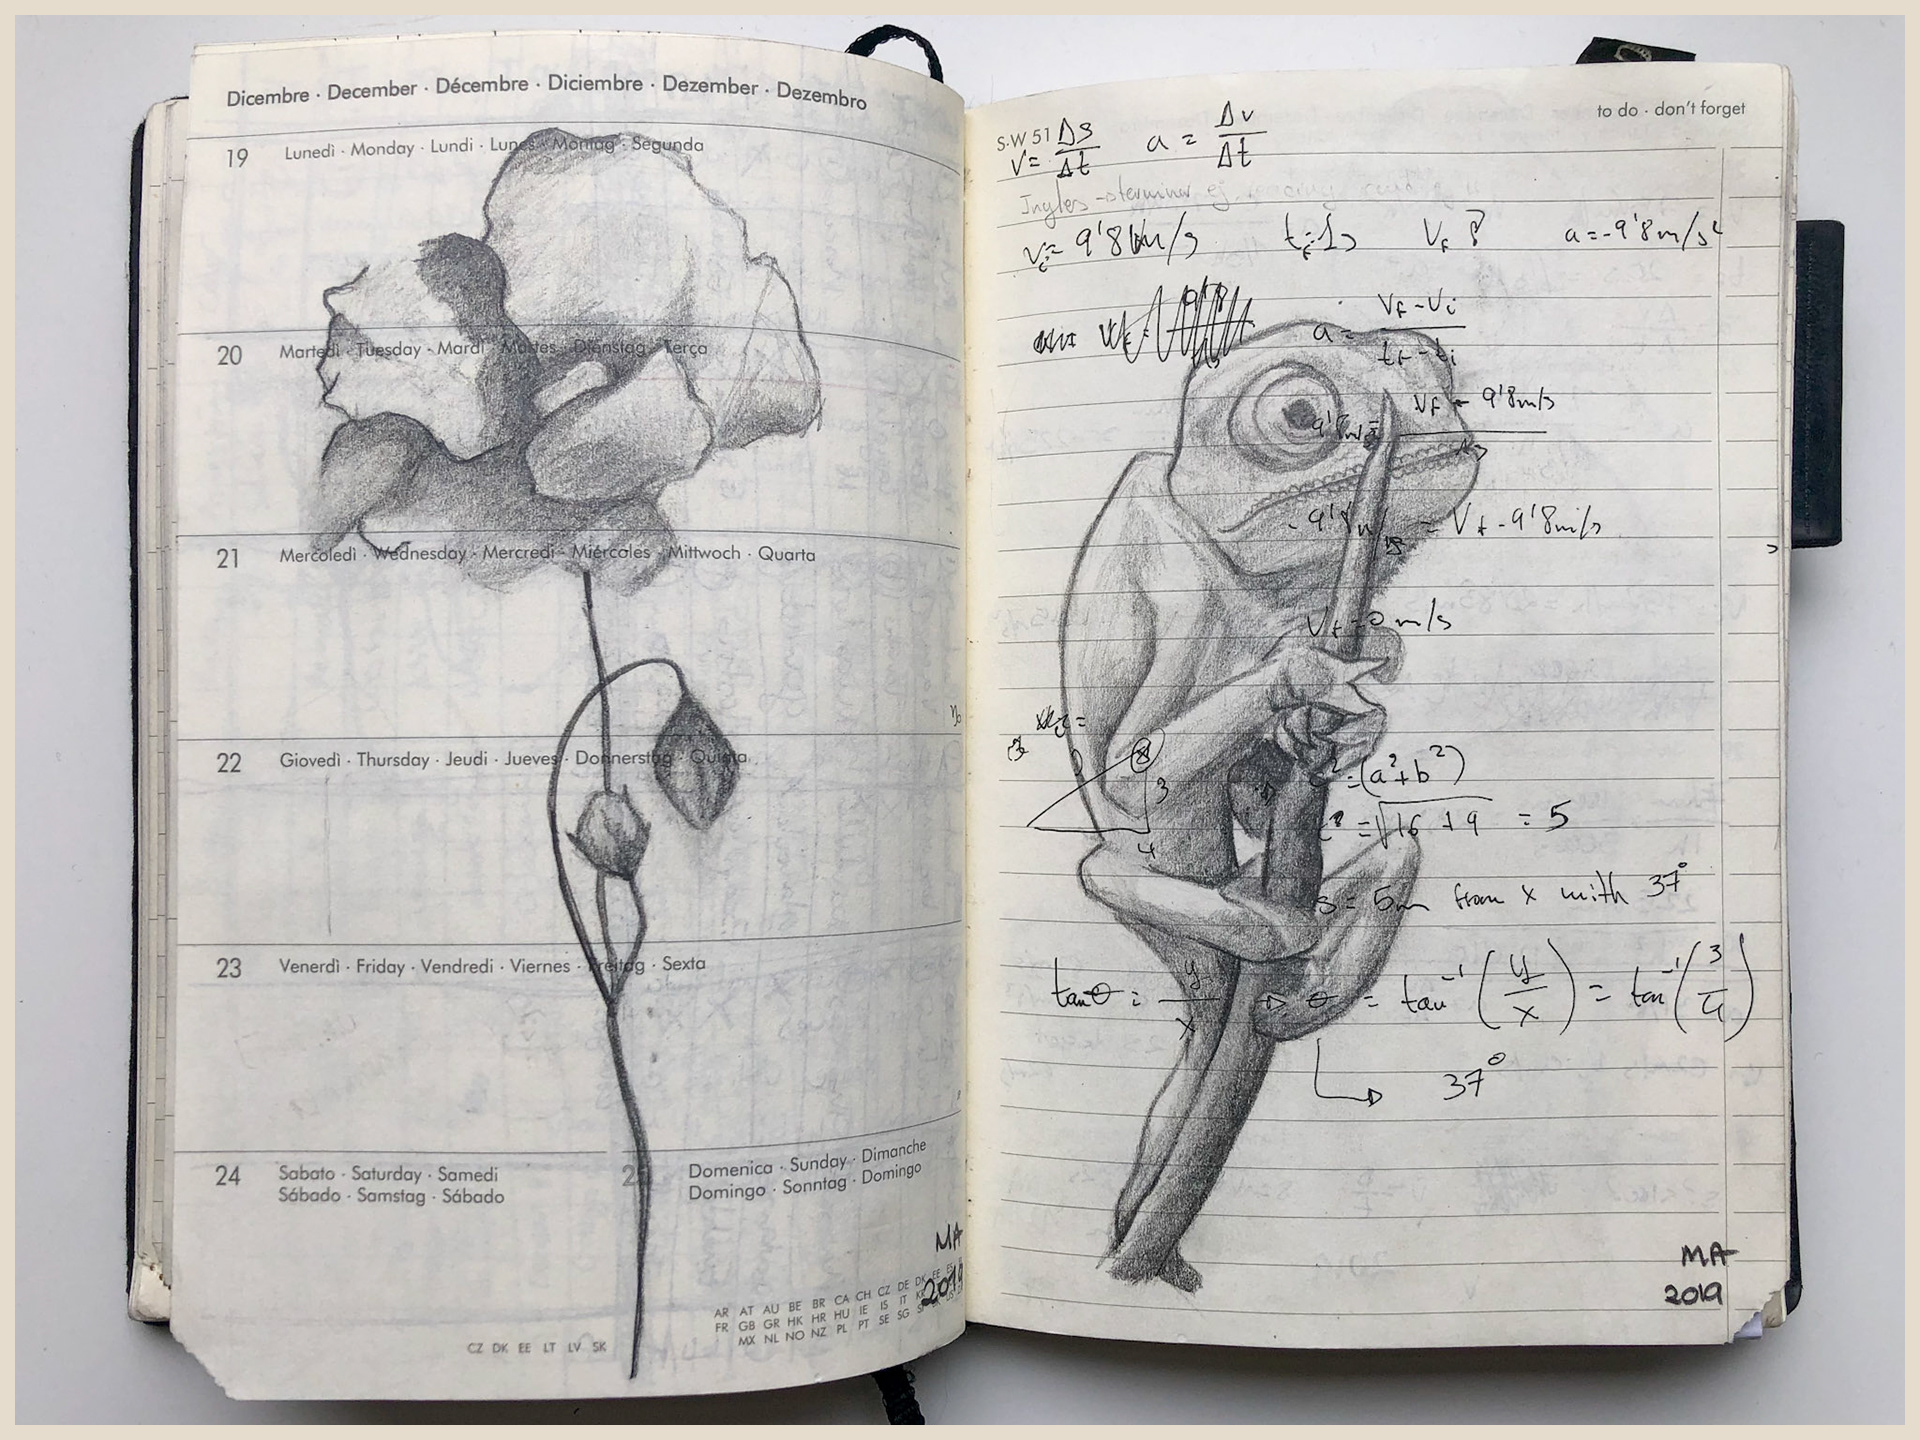 Dicembre · December · Décembre · Diciembre · Dezember · Dezembro
19 Lunedì · Monday · Lundi · Lunes · Montag · Segunda
20 Martedì · Tuesday · Mardi · Martes · Dienstag · Terça
21 Mercoledì · Wednesday · Mercredi · Miércoles · Mittwoch · Quarta
22 Giovedì · Thursday · Jeudi · Jueves · Donnerstag · Quinta
23 Venerdì · Friday · Vendredi · Viernes · Freitag · Sexta
24 Sabato · Saturday · Samedi
Sábado · Samstag · Sábado
25 Domenica · Sunday · Dimanche
Domingo · Sonntag · Domingo
MA
2019
AR AT AU BE BR CA CH CZ DE DK EE ES
FR GB GR HK HR HU IE IS IT
MX NL NO NZ PL PT SE SG
CZ DK EE LT LV SK
to do · don't forget
S.W 51
v = Δs/Δt a = Δv/Δt
Ingles → terminar ej.
vi = 9'8 m/s tf = 1s Vf ? a = -9'8 m/s²
a = Vf - Vi / tf - ti
Vf - 9'8 m/s
1s
-9'8 m/s = Vf - 9'8 m/s
Vf = 0 m/s
3
4
c² = (a² + b²)
= √16 + 9 = 5
s = 5m from x with 37°
tan θ = y/x → θ = tan⁻¹(y/x) = tan⁻¹(3/4)
37°
MA
2019